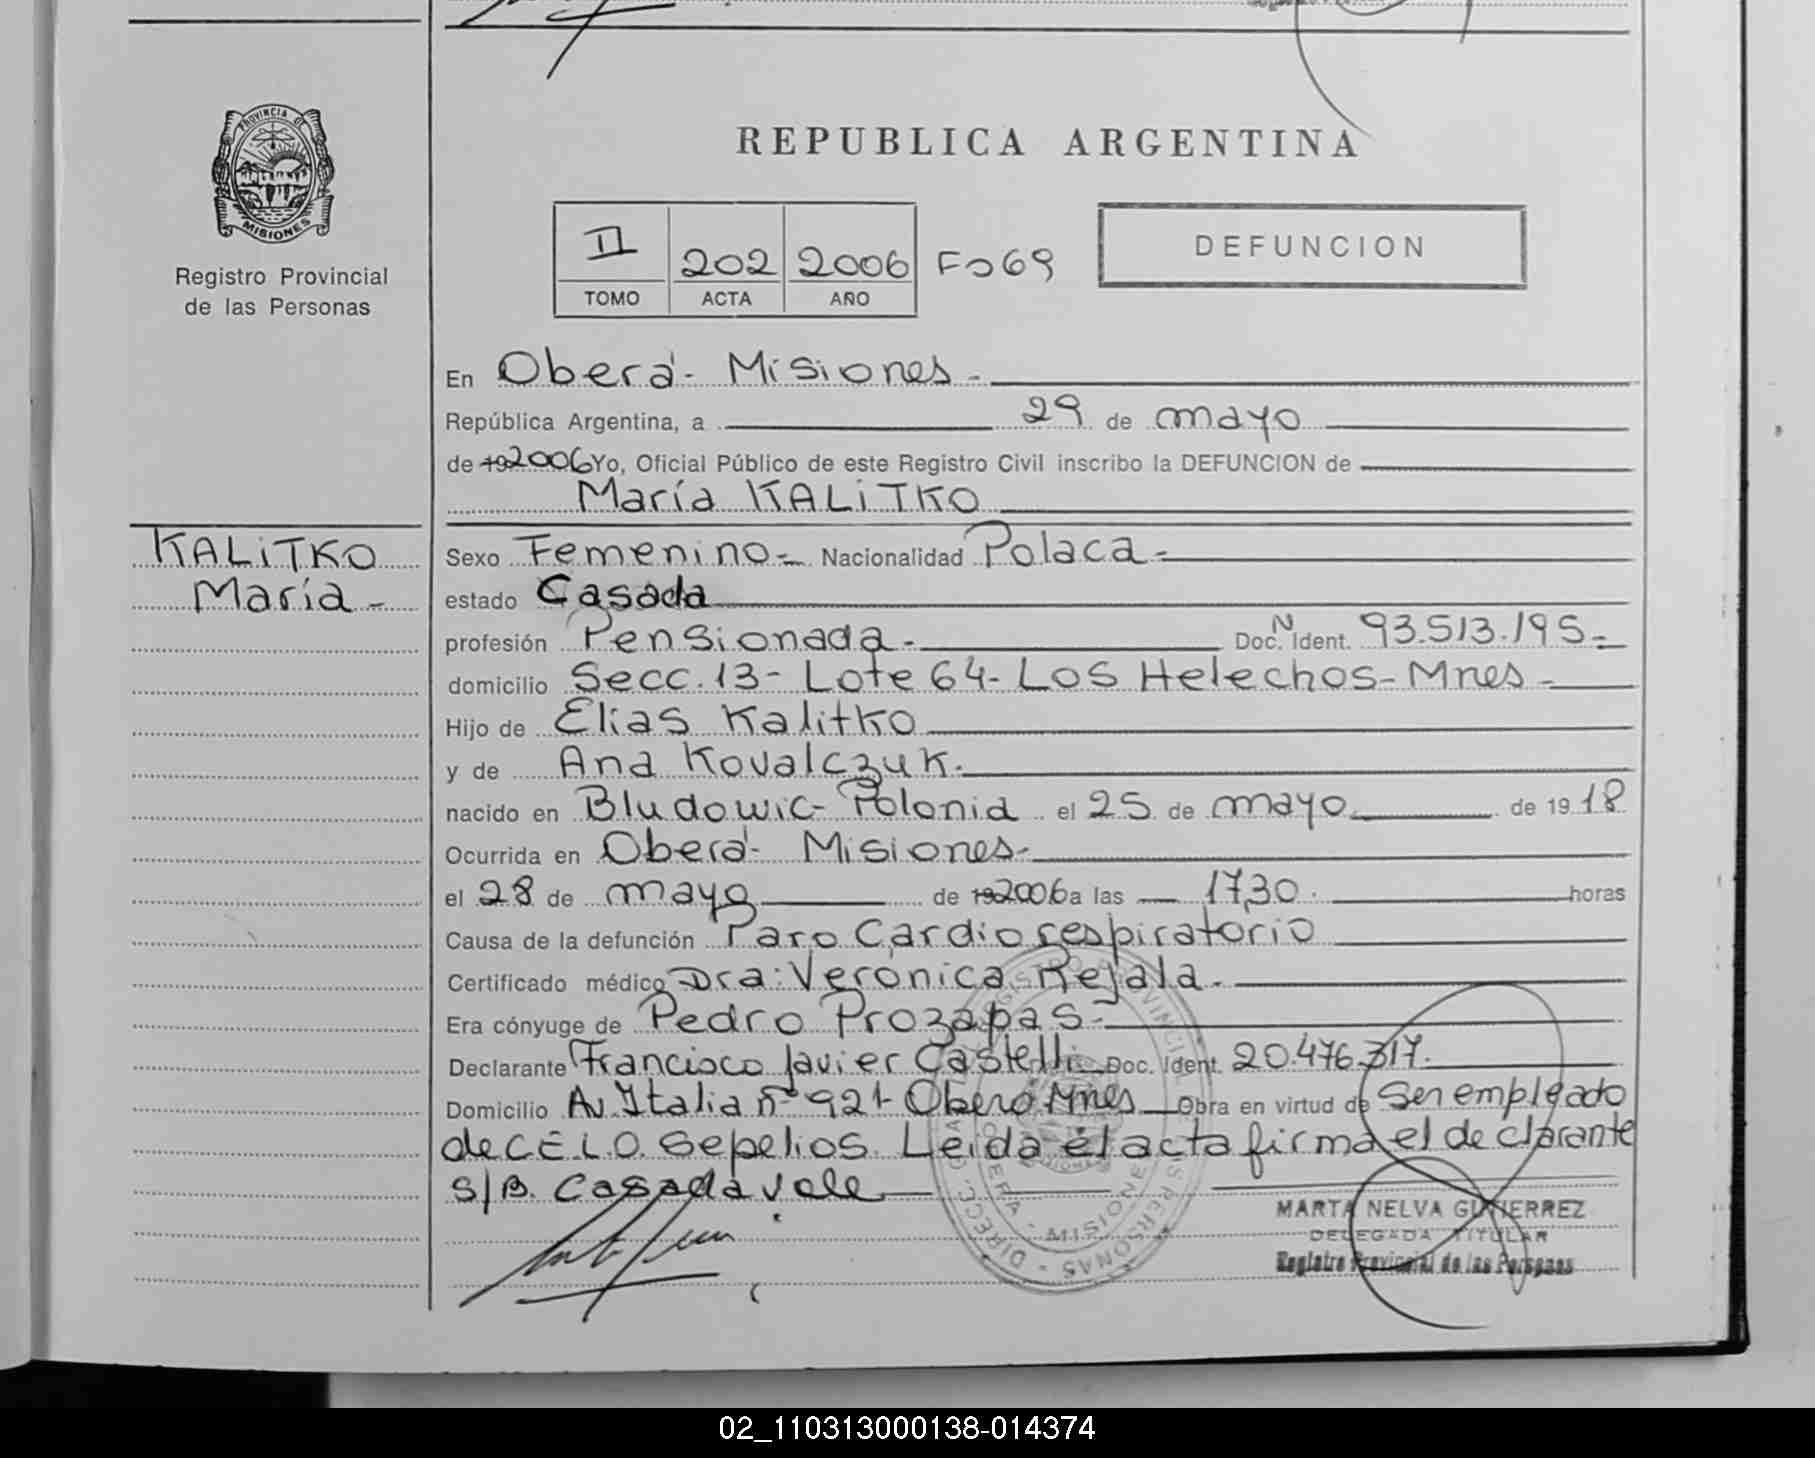 PROVINCIA DE
MISIONES
Registro Provincial
de las Personas
REPUBLICA ARGENTINA
II 202 2006 Fo69
TOMO ACTA AÑO
DEFUNCION
En Oberá- Misiones-
República Argentina, a 29 de mayo
de 192006 Yo, Oficial Público de este Registro Civil inscribo la DEFUNCION de
María KALiTKO
KALiTKO
María-
Sexo Femenino- Nacionalidad Polaca-
estado Casada
profesión Pensionada- Doc. N Ident. 93.513.195-
domicilio Secc. 13- Lote 64- Los Helechos- Mnes-
Hijo de Elias Kalitko
y de Ana Kovalczuk.
nacido en Bludowic- Polonia el 25 de mayo de 1918
Ocurrida en Oberá- Misiones-
el 28 de mayo de 192006 a las 17,30. horas
Causa de la defunción Paro Cardio respiratorio
Certificado médico Dra: Verónica Rejala.
Era cónyuge de Pedro Prozapas-
Declarante Francisco Javier Castelli Doc. Ident. 20.476.317.
Domicilio Av. Italia nº 921- Oberá Mnes Obra en virtud de Ser empleado
de C.E.L.O. Sepelios. Leida el acta firma el declarante
s/B. Casada vale
MARTA NELVA GUTIERREZ
DELEGADA TITULAR
Registro Provincial de las Personas
02_110313000138-014374